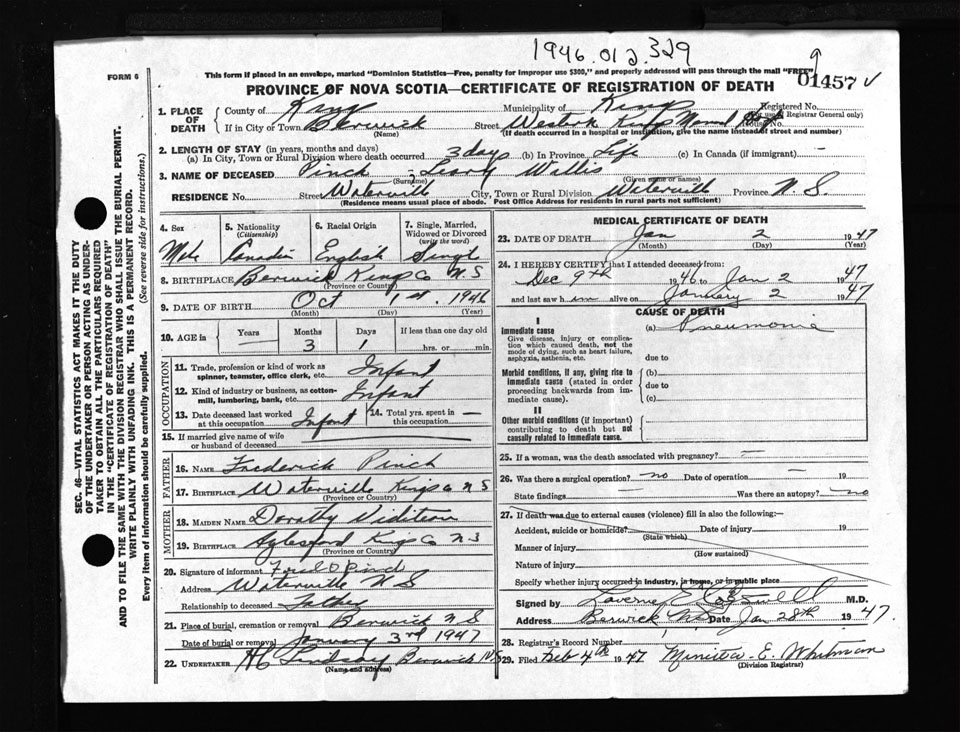 1946.012.329
FORM 6
This form if placed in an envelope, marked "Dominion Statistics—Free, penalty for improper use $300," and properly addressed will pass through the mail "FREE"
9
01457 v
PROVINCE OF NOVA SCOTIA—CERTIFICATE OF REGISTRATION OF DEATH
1. PLACE OF DEATH
County of Kings Municipality of Kings Registered No.
(For use of Registrar General only)
If in City or Town Berwick Street Western Kings Memorial House No.
(Name) (If death occurred in a hospital or institution, give the name instead of street and number)
2. LENGTH OF STAY (in years, months and days)
(a) In City, Town or Rural Division where death occurred 3 days (b) In Province Life (c) In Canada (if immigrant) —
3. NAME OF DECEASED Pinch Willis
(Surname) (Given name or names)
RESIDENCE No. Street Waterville City, Town or Rural Division Waterville Province N.S.
(Residence means usual place of abode. Post Office Address for residents in rural parts not sufficient)
SEC. 46—VITAL STATISTICS ACT MAKES IT THE DUTY
OF THE UNDERTAKER OR PERSON ACTING AS UNDER-
TAKER TO OBTAIN ALL THE PARTICULARS REQUIRED
IN THE "CERTIFICATE OF REGISTRATION OF DEATH"
AND TO FILE THE SAME WITH THE DIVISION REGISTRAR WHO SHALL ISSUE THE BURIAL PERMIT.
WRITE PLAINLY WITH UNFADING INK. THIS IS A PERMANENT RECORD.
Every item of information should be carefully supplied. (See reverse side for instructions.)
4. Sex 5. Nationality (Citizenship) 6. Racial Origin 7. Single, Married, Widowed or Divorced (write the word)
Male Canadian English Single
8. BIRTHPLACE Berwick Kings Co N.S
(Province or Country)
9. DATE OF BIRTH Oct 1st. 1946
(Month) (Day) (Year)
10. AGE in Years — Months 3 Days 1 If less than one day old hrs. or min.
OCCUPATION
11. Trade, profession or kind of work as spinner, teamster, office clerk, etc. Infant
12. Kind of industry or business, as cotton-mill, lumbering, bank, etc. Infant
13. Date deceased last worked at this occupation Infant 14. Total yrs. spent in this occupation —
15. If married give name of wife or husband of deceased —
FATHER
16. NAME Frederick Pinch
17. BIRTHPLACE Waterville Kings Co N S
(Province or Country)
MOTHER
18. MAIDEN NAME Dorothy
19. BIRTHPLACE Aylesford Kings Co N.S
(Province or Country)
20. Signature of informant Pinch
Address Waterville N S
Relationship to deceased Father
21. Place of burial, cremation or removal Berwick N S
Date of burial or removal January 3rd 1947
22. UNDERTAKER Berwick N S
(Name and address)
MEDICAL CERTIFICATE OF DEATH
23. DATE OF DEATH Jan 2 1947
(Month) (Day) (Year)
24. I HEREBY CERTIFY that I attended deceased from:
Dec 9th 1946 to Jan 2 1947
and last saw him alive on January 2 1947
CAUSE OF DEATH
I
Immediate cause (a) Pneumonia
Give disease, injury or complication which caused death, not the mode of dying, such as heart failure, asphyxia, asthenia, etc.
due to
Morbid conditions, if any, giving rise to immediate cause (stated in order proceeding backwards from immediate cause).
(b)
due to
(c)
II
Other morbid conditions (if important) contributing to death but not causally related to immediate cause.
25. If a woman, was the death associated with pregnancy? —
26. Was there a surgical operation? no Date of operation — 19
State findings — Was there an autopsy? no
27. If death was due to external causes (violence) fill in also the following:—
Accident, suicide or homicide? Date of injury 19
(State which)
Manner of injury
(How sustained)
Nature of injury
Specify whether injury occurred in industry, in home, or in public place
Signed by M.D.
Address Berwick N.S. Date Jan 28th 1947
28. Registrar's Record Number
29. Filed Feb 4th 1947 E. Whitman
(Division Registrar)